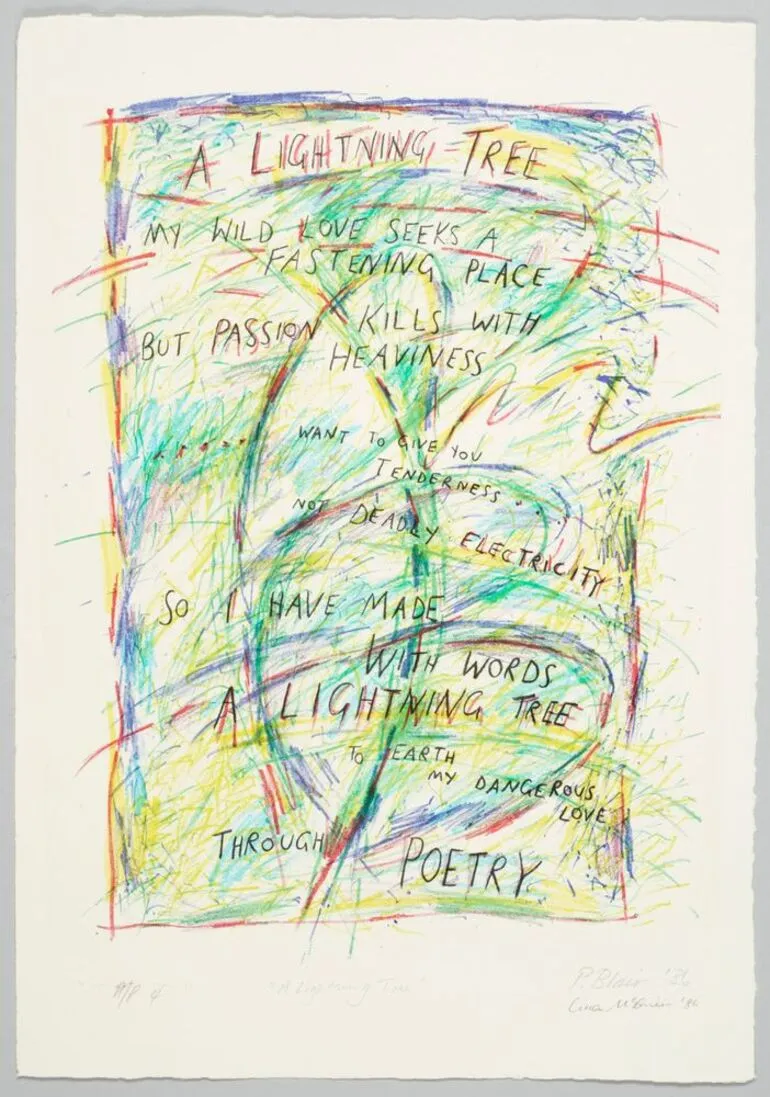 A LIGHTNING TREE
MY WILD LOVE SEEKS A
FASTENING PLACE
BUT PASSION KILLS WITH
HEAVINESS
WANT TO GIVE YOU
TENDERNESS...
NOT DEADLY ELECTRICITY
SO I HAVE MADE
WITH WORDS
A LIGHTNING TREE
TO EARTH
MY DANGEROUS
LOVE
THROUGH POETRY
"A Lightning Tree" P. Blair '86
'86